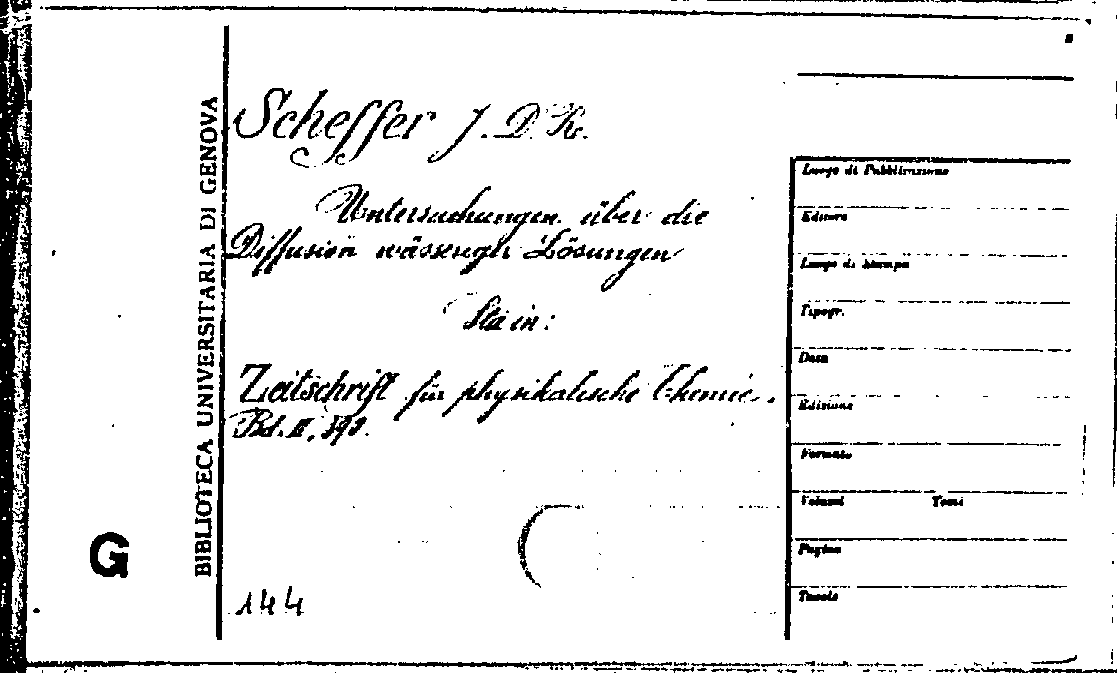 BIBLIOTECA UNIVERSITARIA DI GENOVA
G
Scheffer J. D. R.
Untersuchungen über die
Diffusion wässenger Lösungen
Sta in:
Zeitschrift für physikalische Chemie.
Bd. II, 390.
144
Luogo di Pubblicazione
Editore
Luogo di stampa
Tipogr.
Data
Edizione
Formato
Volumi Tomi
Pagine
Tavole